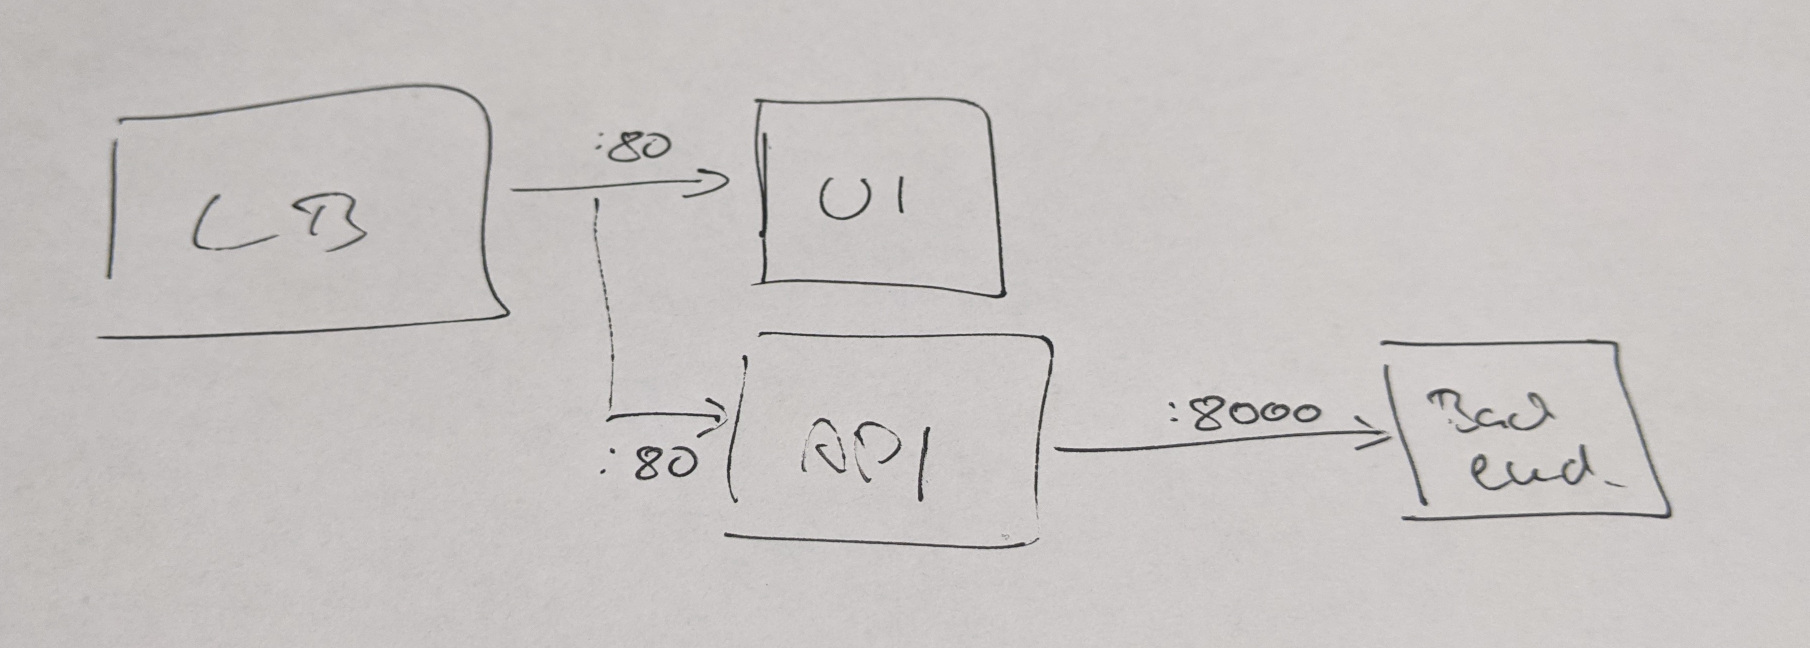 :80
LB
UI
:80
API
:8000
Back
end.